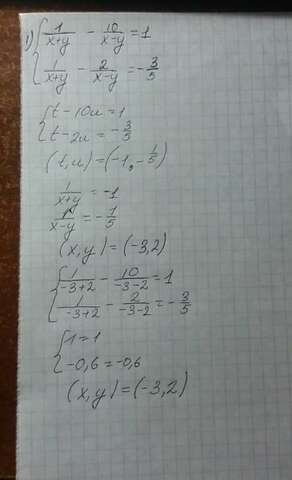 1) { 1/(x+y) - 10/(x-y) = 1
{ 1/(x+y) - 2/(x-y) = -3/5
{ t - 10u = 1
{ t - 2u = -3/5
(t,u) = (-1, -1/5)
1/(x+y) = -1
1/(x-y) = -1/5
(x,y) = (-3,2)
{ 1/(-3+2) - 10/(-3-2) = 1
{ 1/(-3+2) - 2/(-3-2) = -3/5
{ 1 = 1
{ -0,6 = -0,6
(x,y) = (-3,2)